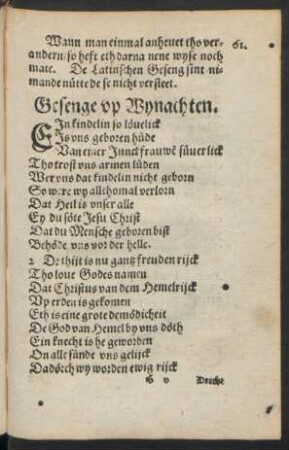 Wann man einmal anheuet tho ver- 61.
andern/ so heft eth darna nene wyse noch
mate. De Latinschen Geseng sint ni-
mande nütte de se nicht versteet.
Gesenge vp Wynachten.
EIn kindelin so löuelick
Is vns geboren hüde
Van einer Junckfrauwē süuerlick
Tho trost vns armen lüden
Wer vns dat kindelin nicht geborn
So were wy allthomal verlorn
Dat Heil is vnser alle
Ey du söte Jesu Christ
Dat du Mensche geboren bist
Behöde vns vor der helle.
2 De thijt is nu gantz freuden rijck
Tho loue Godes namen
Dat Christus van dem Hemelrijck
Vp erden is gekomen
Eth is eine grote demödicheit
De God van Hemel by vns döth
Ein knecht is he geworden
On alle sünde vns gelijck
Dadörch wy worden ewig rijck
Drecht